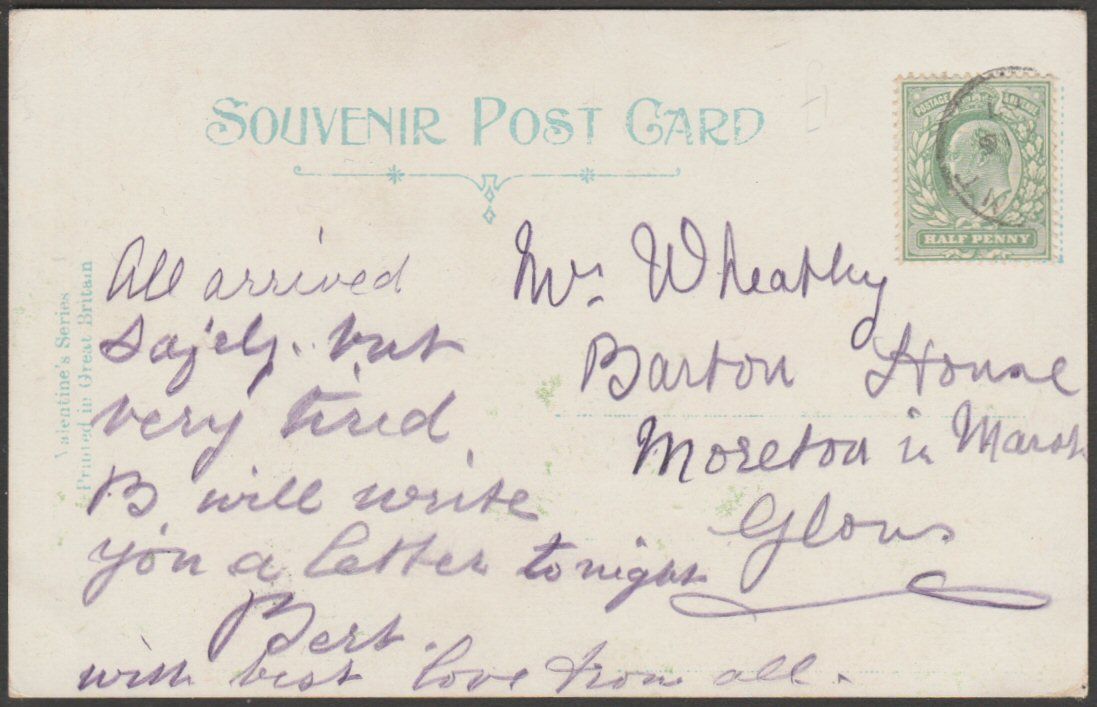 SOUVENIR POST CARD
POSTAGE
HALF PENNY
Valentine's Series
Printed in Great Britain
All arrived
safely. but
very tired
B. will write
you a letter tonight
Bert.
with best love from all.
Mrs Wheatley
Barton House
Moreton in Marsh
Glous